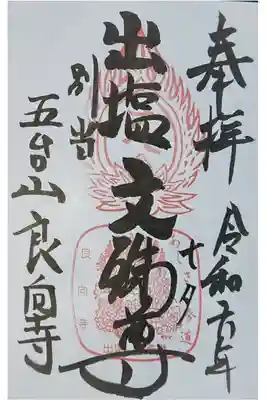 奉拝
令和六年
七夕
出塩文殊尊
別当
五台山良向寺
良向寺